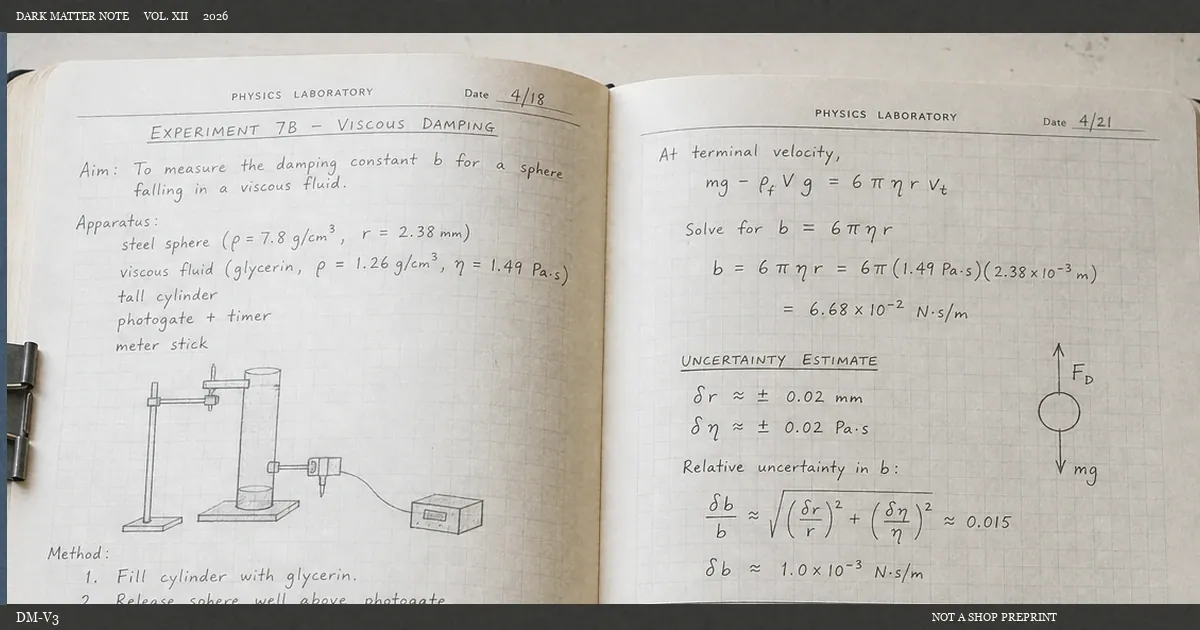 DARK MATTER NOTE VOL. XII 2026
PHYSICS LABORATORY Date 4/18
EXPERIMENT 7B – VISCOUS DAMPING
Aim: To measure the damping constant b for a sphere
falling in a viscous fluid.
Apparatus:
steel sphere (ρ = 7.8 g/cm³, r = 2.38 mm)
viscous fluid (glycerin, ρ = 1.26 g/cm³, η = 1.49 Pa·s)
tall cylinder
photogate + timer
meter stick
Method:
1. Fill cylinder with glycerin.
2. Release sphere well above photogate
PHYSICS LABORATORY Date 4/21
At terminal velocity,
mg − ρf V g = 6 π η r Vt
Solve for b = 6 π η r
b = 6 π η r = 6π (1.49 Pa·s)(2.38 × 10⁻³ m)
= 6.68 × 10⁻² N·s/m
UNCERTAINTY ESTIMATE
δr ≈ ± 0.02 mm
δη ≈ ± 0.02 Pa·s
Relative uncertainty in b:
δb/b ≈ √((δr/r)² + (δη/η)²) ≈ 0.015
δb ≈ 1.0 × 10⁻³ N·s/m
FD
mg
DM-V3
NOT A SHOP PREPRINT